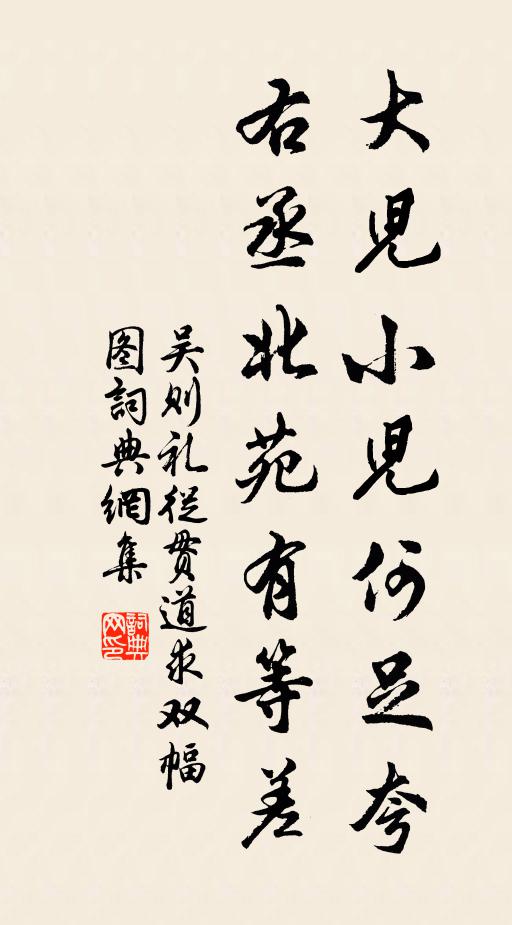 大児小児何足夸
右丞北苑有等差
吴则礼從贯道求双幅
图詞典網集
詞典网印